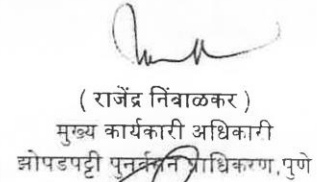 ( राजेंद्र निंबाळकर )
मुख्य कार्यकारी अधिकारी
झोपडपट्टी पुनर्वसन प्राधिकरण,पुणे